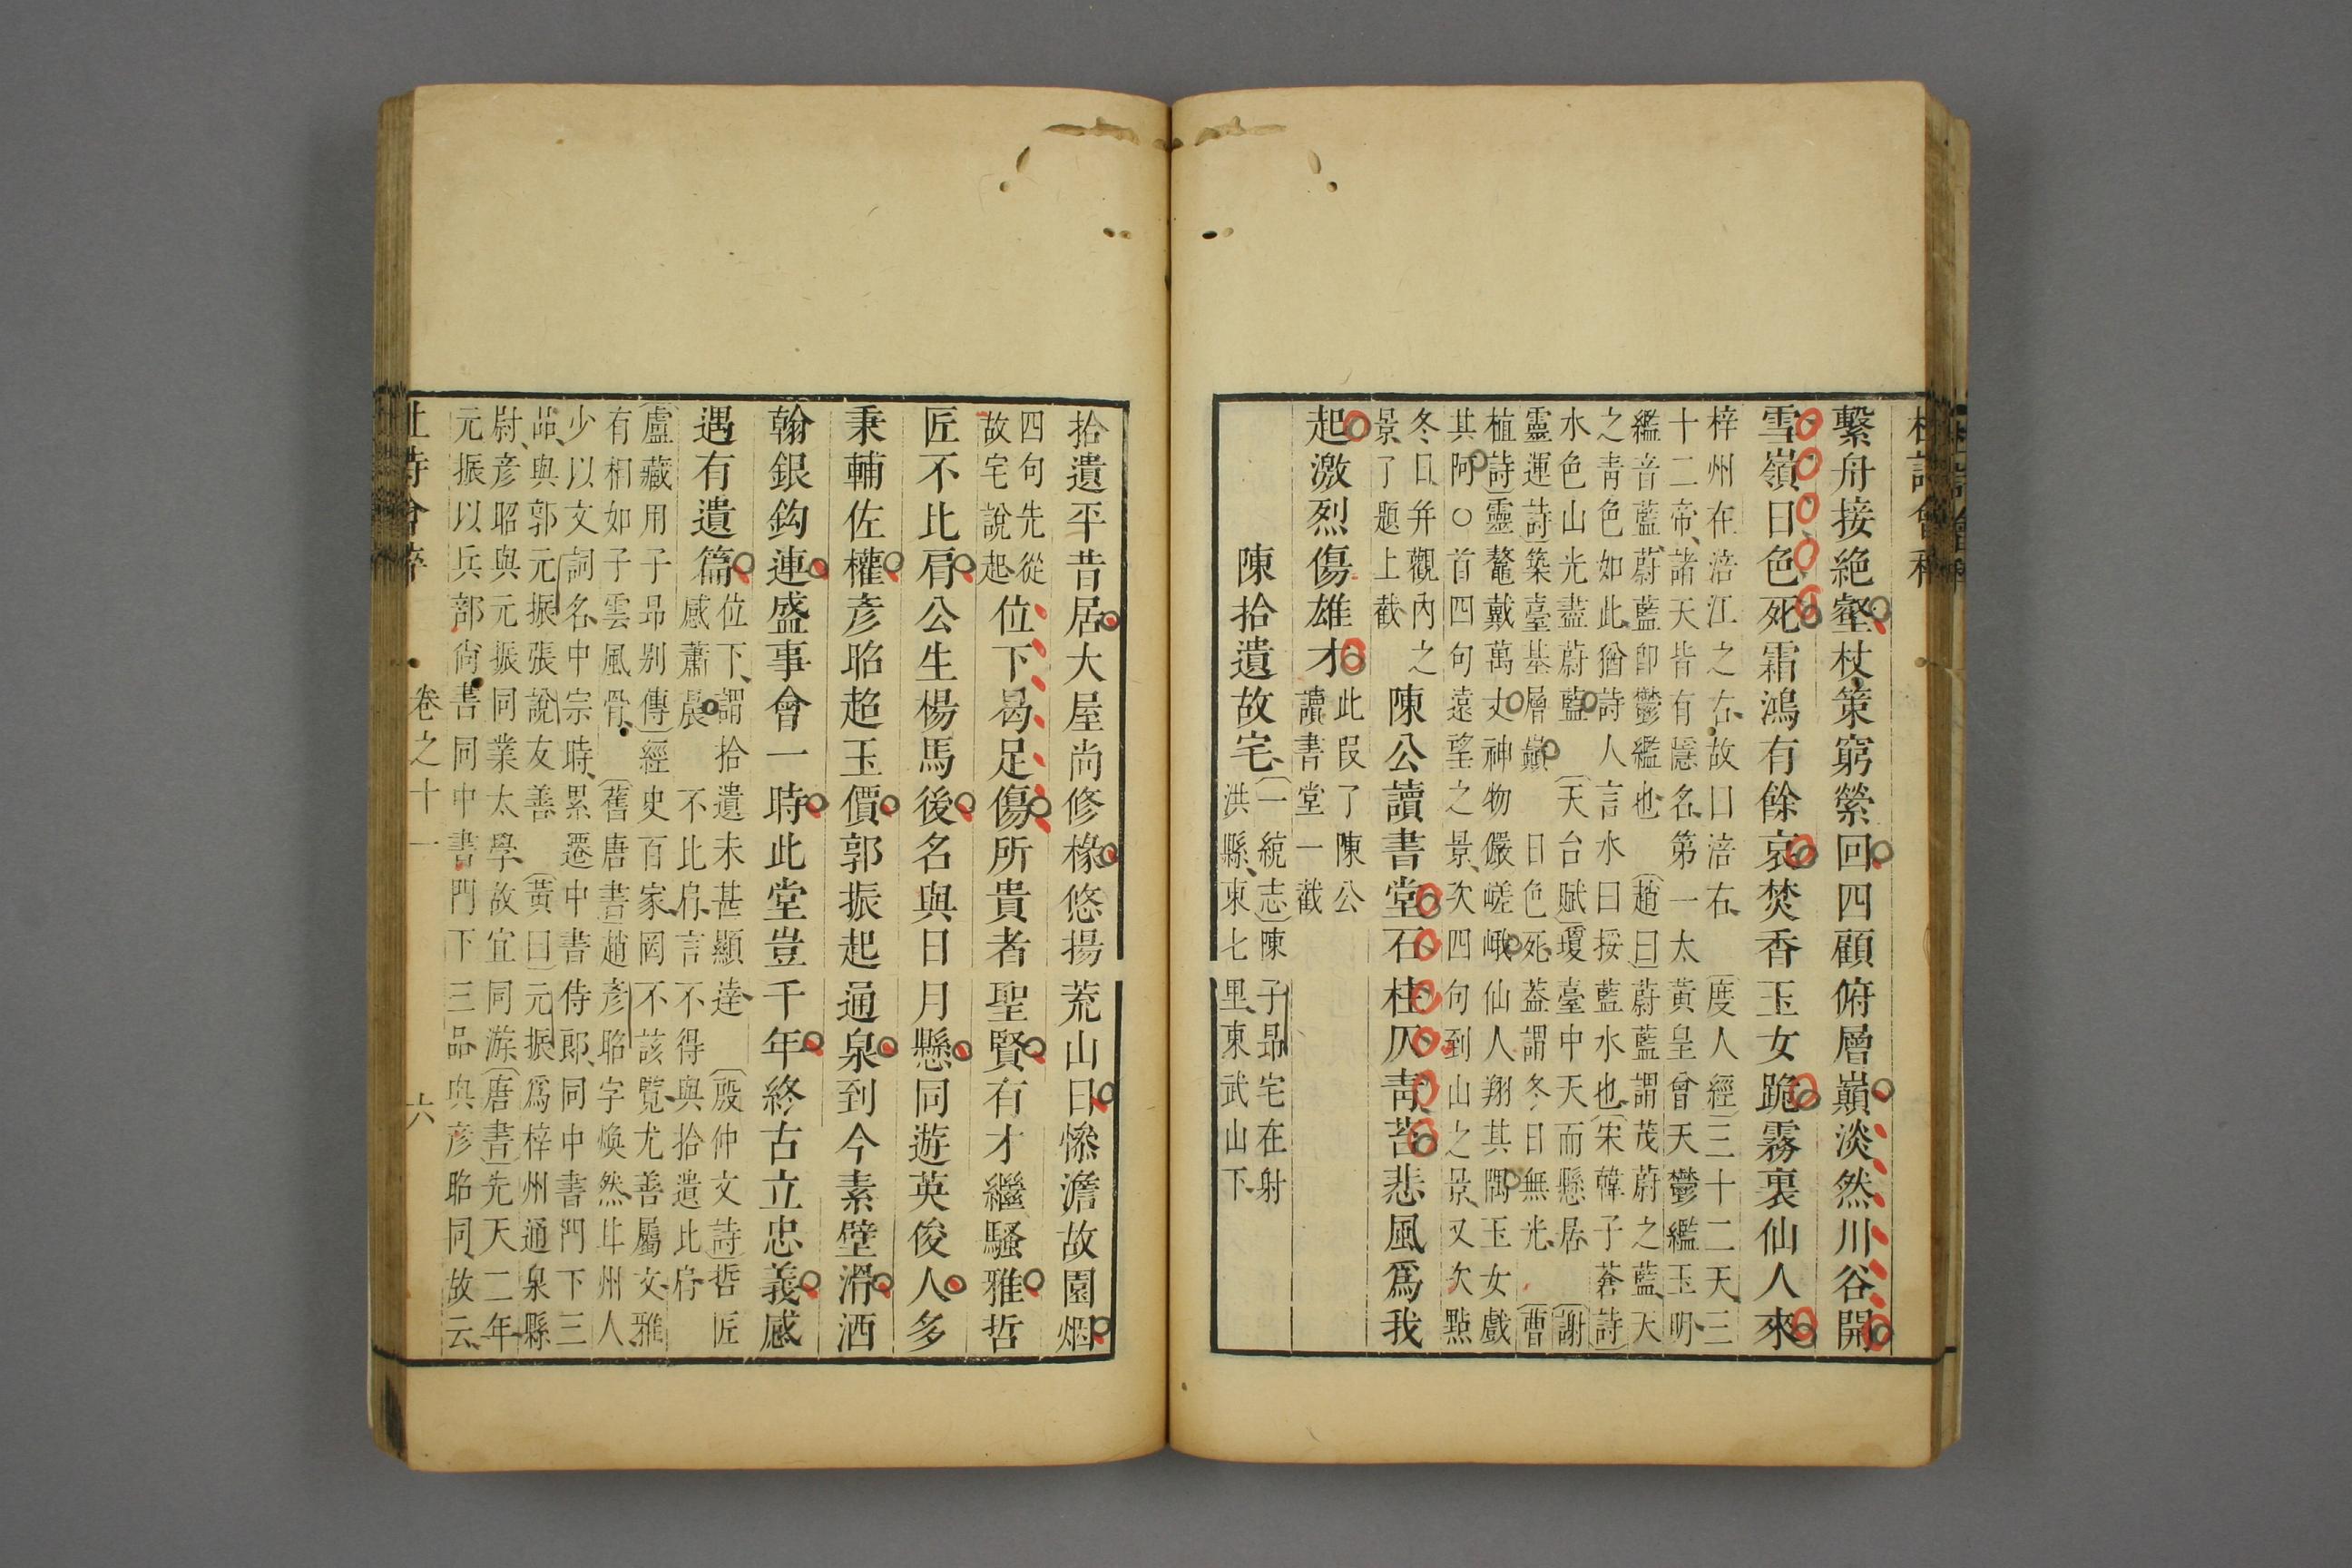 杜詩會稡
繫舟接絶壑杖策窮縈回四顧俯層巔淡然川谷開
雪嶺日色死霜鴻有餘哀焚香玉女跪霧裏仙人來
梓州在涪江之右故曰涪右〔度人經〕三十二天三
十二帝諸天皆有隱名第一太黃皇曾天鬱繿玉明
繿音藍蔚藍卽鬱繿也〔趙曰〕蔚藍謂茂蔚之藍天
之青色如此猶詩人言水曰挼藍水也〔宋韓子蒼詩〕
水色山光盡蔚藍〔天台賦〕瓊臺中天而懸居〔謝
靈運詩〕築臺基層巔 日色死葢謂冬日無光〔曹
植詩〕靈鼇戴萬丈神物儼嵯峨仙人翔其隅玉女戲
其阿○首四句遠望之景次四句到山之景又次點
冬日幷觀內之
景了題上截
陳公讀書堂石柱仄靑苔悲風爲我
起激烈傷雄才
此叚了陳公
讀書堂一截
陳拾遺故宅
〔一統志〕陳子昻宅在射
洪縣東七里東武山下
拾遺平昔居大屋尚修椽悠揚荒山日慘澹故園烟
四句先從
故宅說起
位下曷足傷所貴者聖賢有才繼騷雅哲
匠不比肩公生楊馬後名與日月懸同遊英俊人多
秉輔佐權彥昭超玉價郭振起通泉到今素壁滑洒
翰銀鈎連盛事會一時此堂豈千年終古立忠義感
遇有遺篇
位下謂拾遺未甚顯達〔殷仲文詩〕哲匠
感蕭晨 不比肩言不得與拾遺比肩
〔盧藏用子昻别傳〕經史百家罔不該覽尤善屬文雅
有相如子雲風骨〔舊唐書〕趙彥昭字煥然甘州人
少以文詞名中宗時累遷中書侍郎同中書門下三
品與郭元振張說友善〔黃曰〕元振爲梓州通泉縣
尉彥昭與元振同業太學故宜同游〔唐書〕先天二年
元振以兵部尙書同中書門下三品與彥昭同故云
杜詩會稡 卷之十一 六